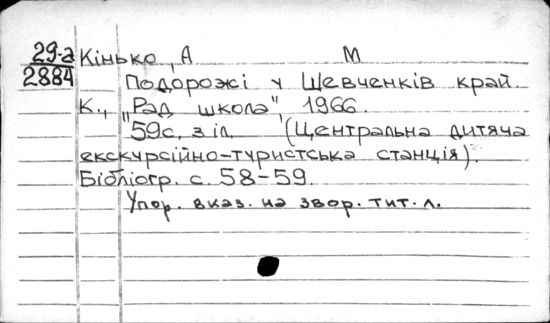 29-а Кінько, А М
2884 Подорожі у Шевченків край.
К., "Рад школа", 1966.
59с, з іл. (Центральна дитяча
екскурсійно-туристська станція).
Бібліогр. с. 58-59.
Упор. вказ. на звор. тит. л.